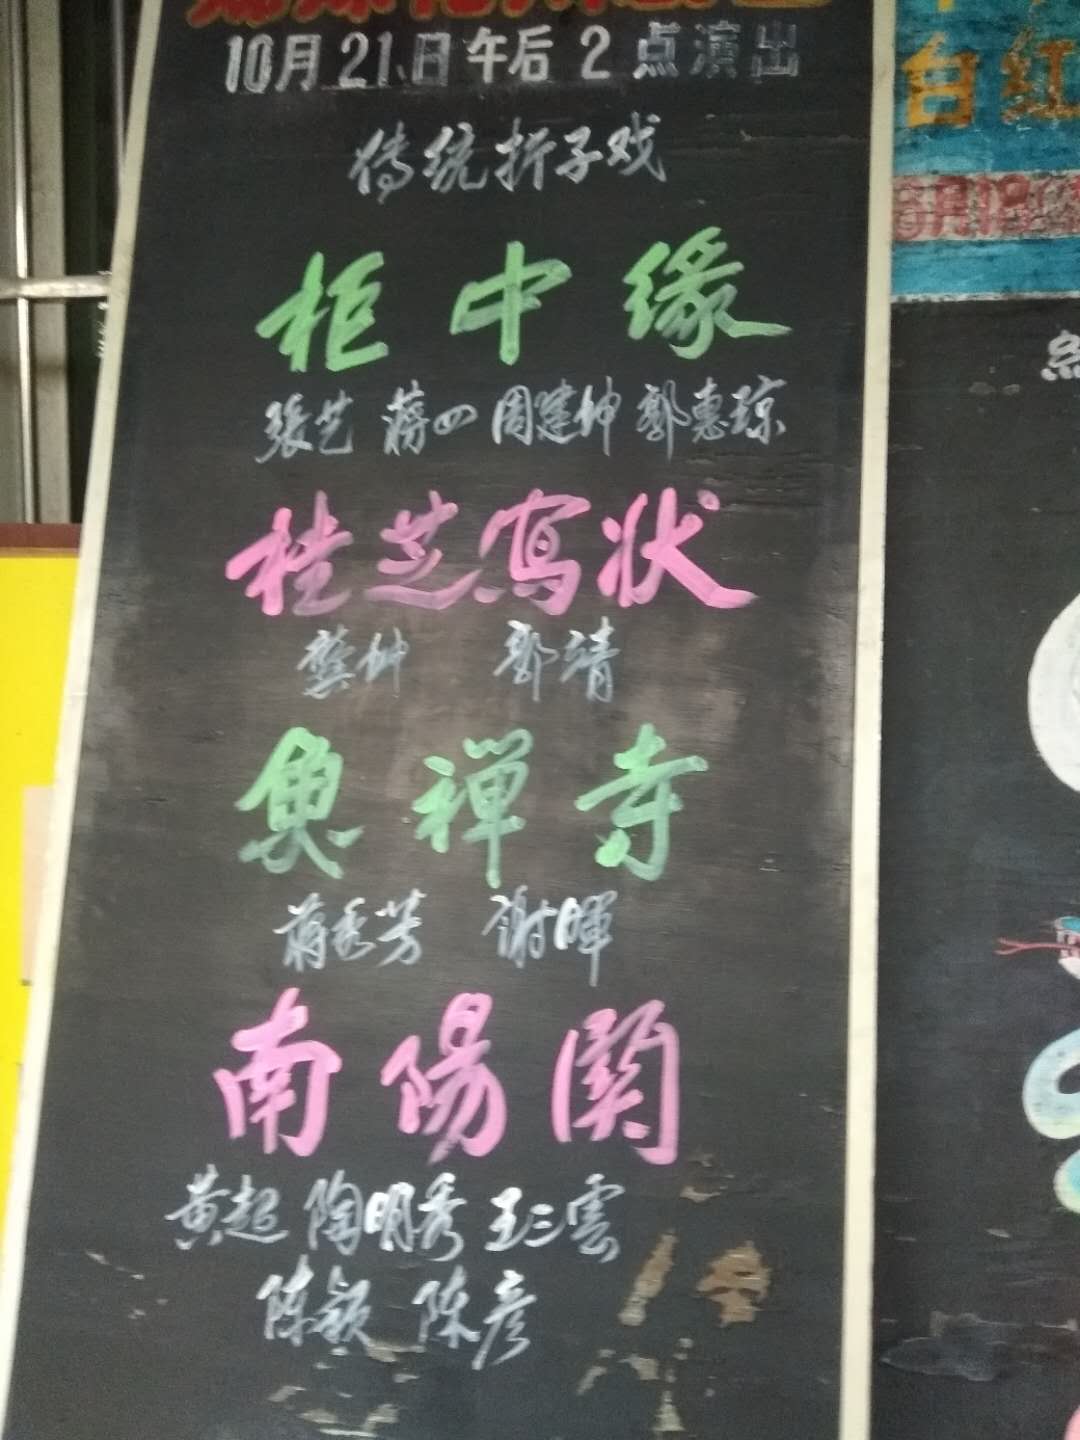 10月21日午后2点演出
传统折子戏
柜中缘
張艺 蒋四 周建坤 郭惠琼
桂芝写状
龚坤 郭靖
奠禅寺
蒋秀芳 谢暉
南陽関
黄超 陶明秀 王三雲
陈颖 陈彦
白红